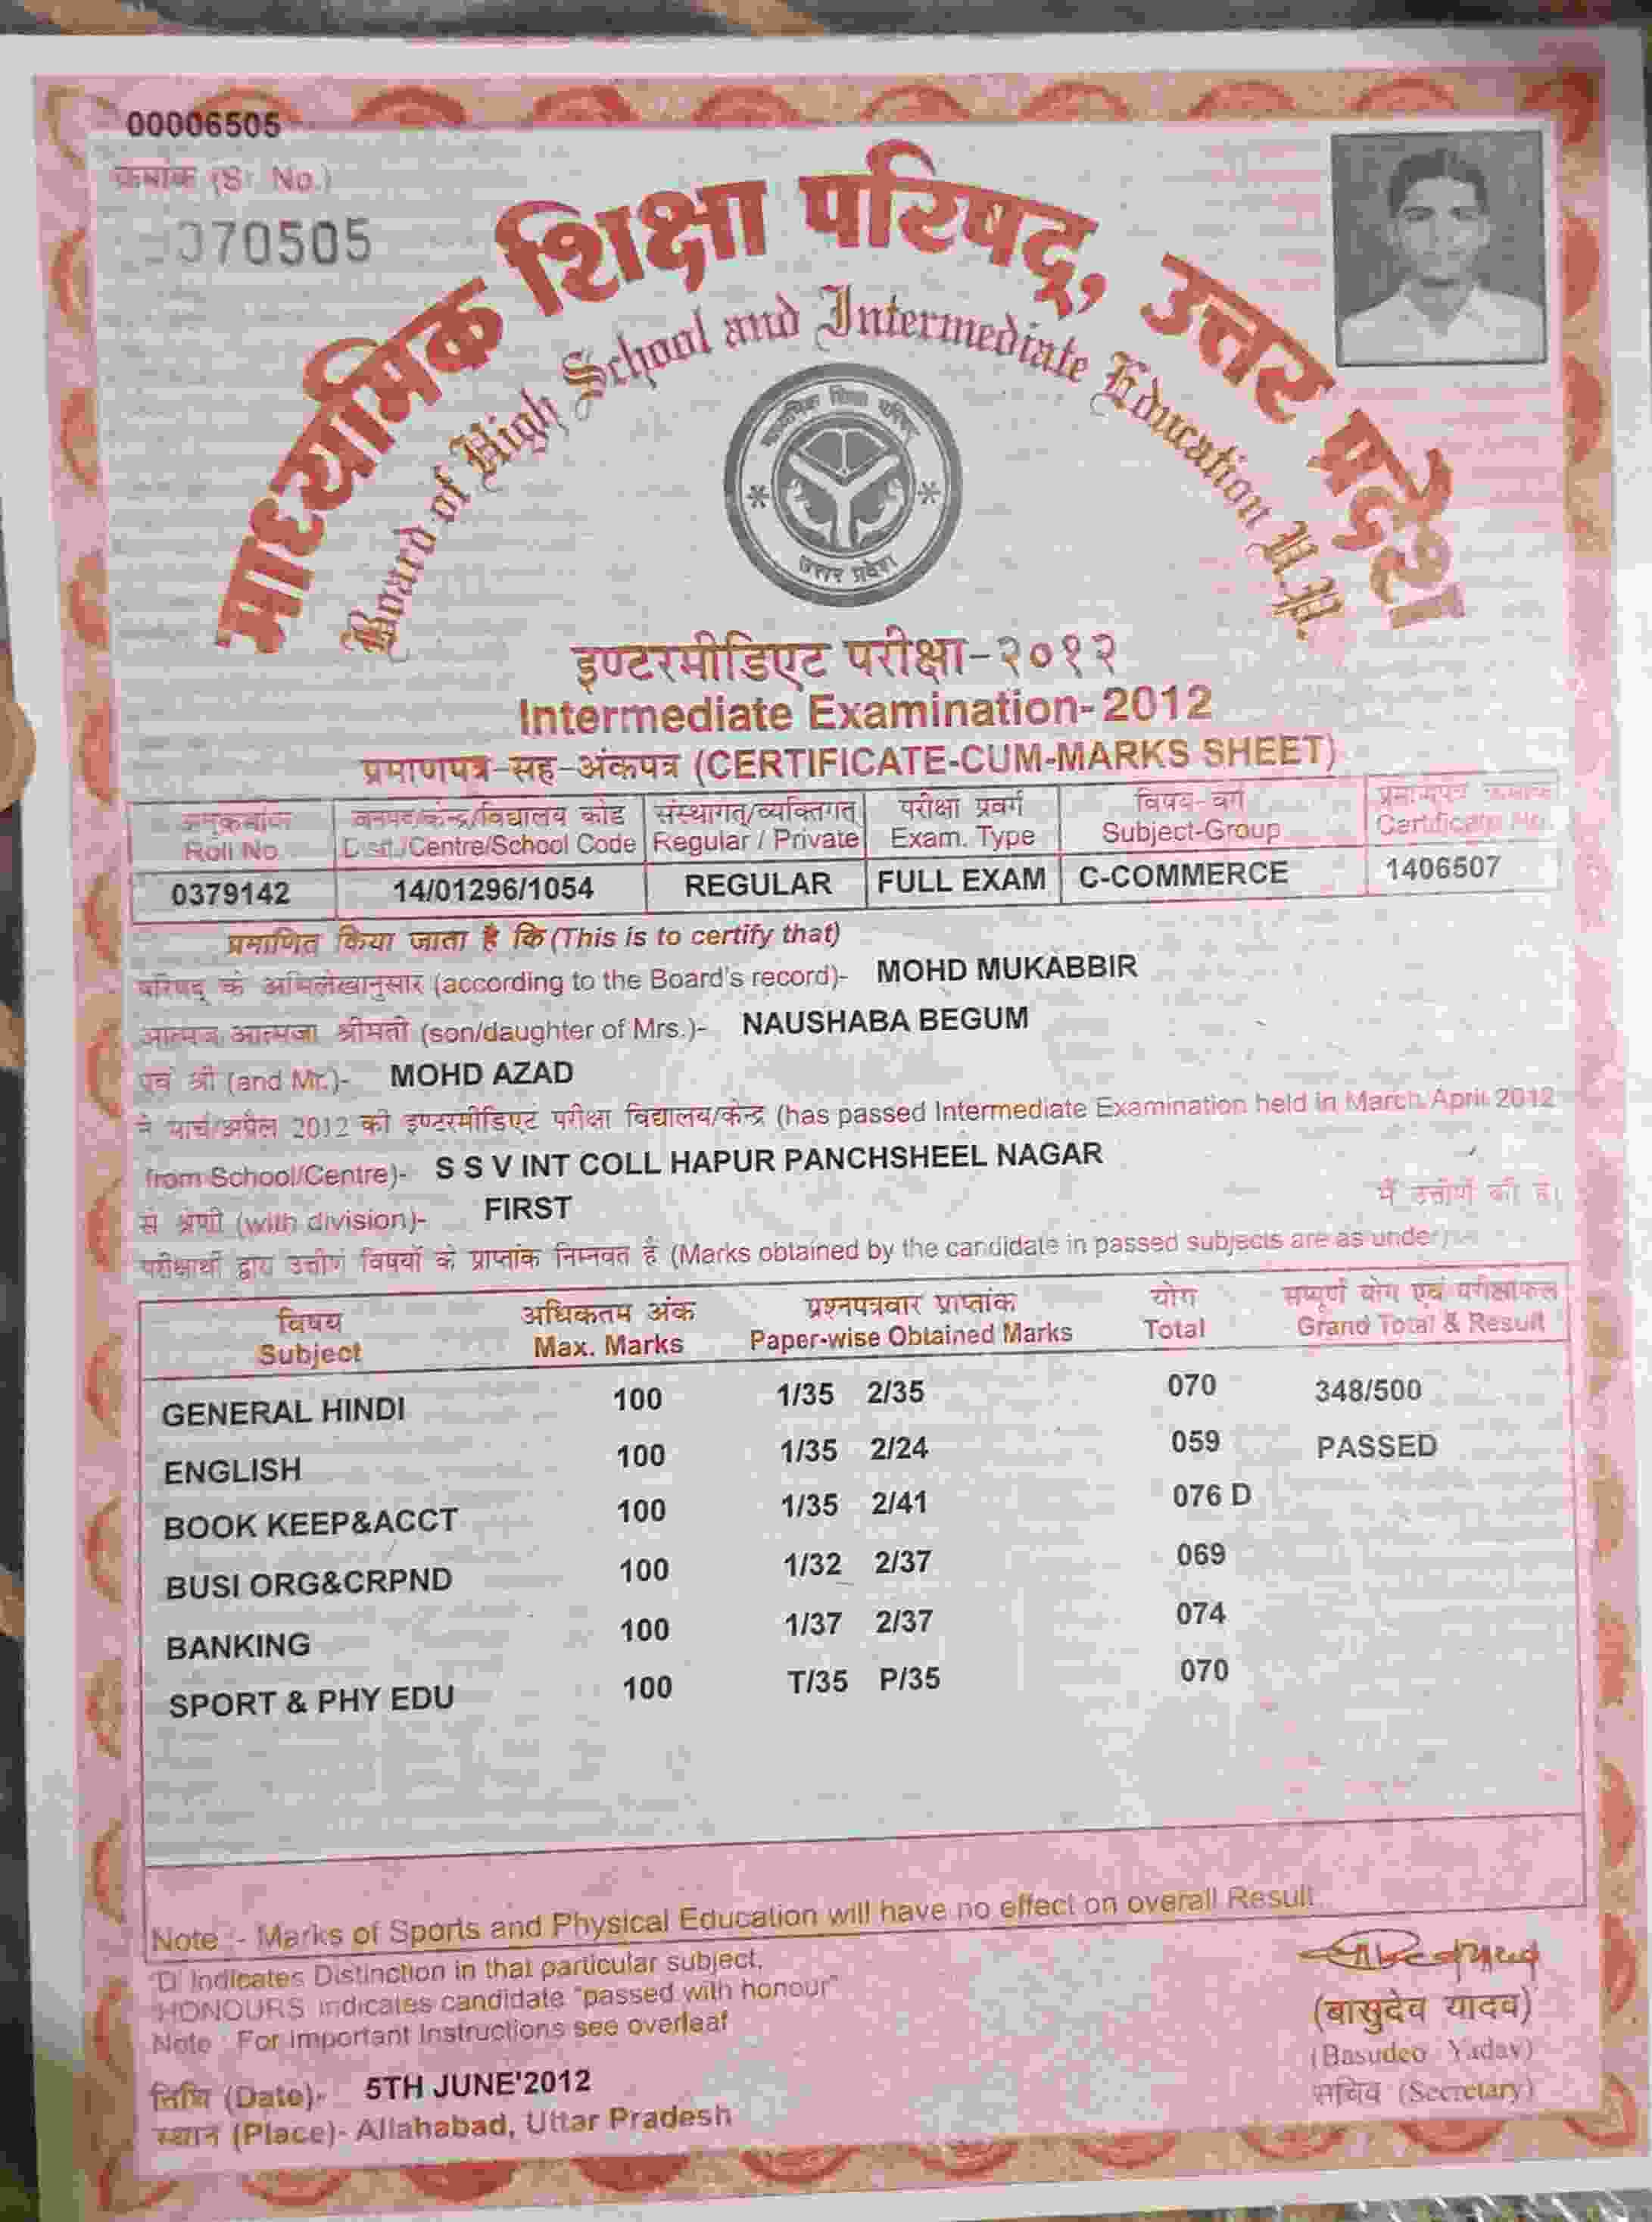 00006505
क्रमांक (Sr. No.)
070505
माध्यमिक शिक्षा परिषद्, उत्तर प्रदेश
Board of High School and Intermediate Education U.P.
माध्यमिक शिक्षा परिषद्
उत्तर प्रदेश
इण्टरमीडिएट परीक्षा-२०१२
Intermediate Examination-2012
प्रमाणपत्र-सह-अंकपत्र (CERTIFICATE-CUM-MARKS SHEET)
अनुक्रमांक जनपद/केन्द्र/विद्यालय कोड संस्थागत/व्यक्तिगत परीक्षा प्रवर्ग विषय-वर्ग प्रमाणपत्र क्रमांक
Roll No. Distt./Centre/School Code Regular / Private Exam. Type Subject-Group Certificate No.
0379142 14/01296/1054 REGULAR FULL EXAM C-COMMERCE 1406507
प्रमाणित किया जाता है कि (This is to certify that)
परिषद् के अभिलेखानुसार (according to the Board's record)- MOHD MUKABBIR
आत्मज/आत्मजा श्रीमती (son/daughter of Mrs.)- NAUSHABA BEGUM
एवं श्री (and Mr.)- MOHD AZAD
ने मार्च/अप्रैल 2012 की इण्टरमीडिएट परीक्षा विद्यालय/केन्द्र (has passed Intermediate Examination held in March April 2012
from School/Centre)- S S V INT COLL HAPUR PANCHSHEEL NAGAR
से श्रेणी (with division)- FIRST में उत्तीर्ण की है।
परीक्षार्थी द्वारा उत्तीर्ण विषयों के प्राप्तांक निम्नवत हैं (Marks obtained by the candidate in passed subjects are as under)
विषय अधिकतम अंक प्रश्नपत्रवार प्राप्तांक योग सम्पूर्ण योग एवं परीक्षाफल
Subject Max. Marks Paper-wise Obtained Marks Total Grand Total & Result
GENERAL HINDI 100 1/35 2/35 070 348/500
ENGLISH 100 1/35 2/24 059 PASSED
BOOK KEEP&ACCT 100 1/35 2/41 076 D
BUSI ORG&CRPND 100 1/32 2/37 069
BANKING 100 1/37 2/37 074
SPORT & PHY EDU 100 T/35 P/35 070
Note :- Marks of Sports and Physical Education will have no effect on overall Result.
'D' Indicates Distinction in that particular subject.
HONOURS indicates candidate "passed with honour"
Note : For Important Instructions see overleaf
(बासुदेव यादव)
(Basudeo Yadav)
सचिव (Secretary)
तिथि (Date)- 5TH JUNE'2012
स्थान (Place)- Allahabad, Uttar Pradesh